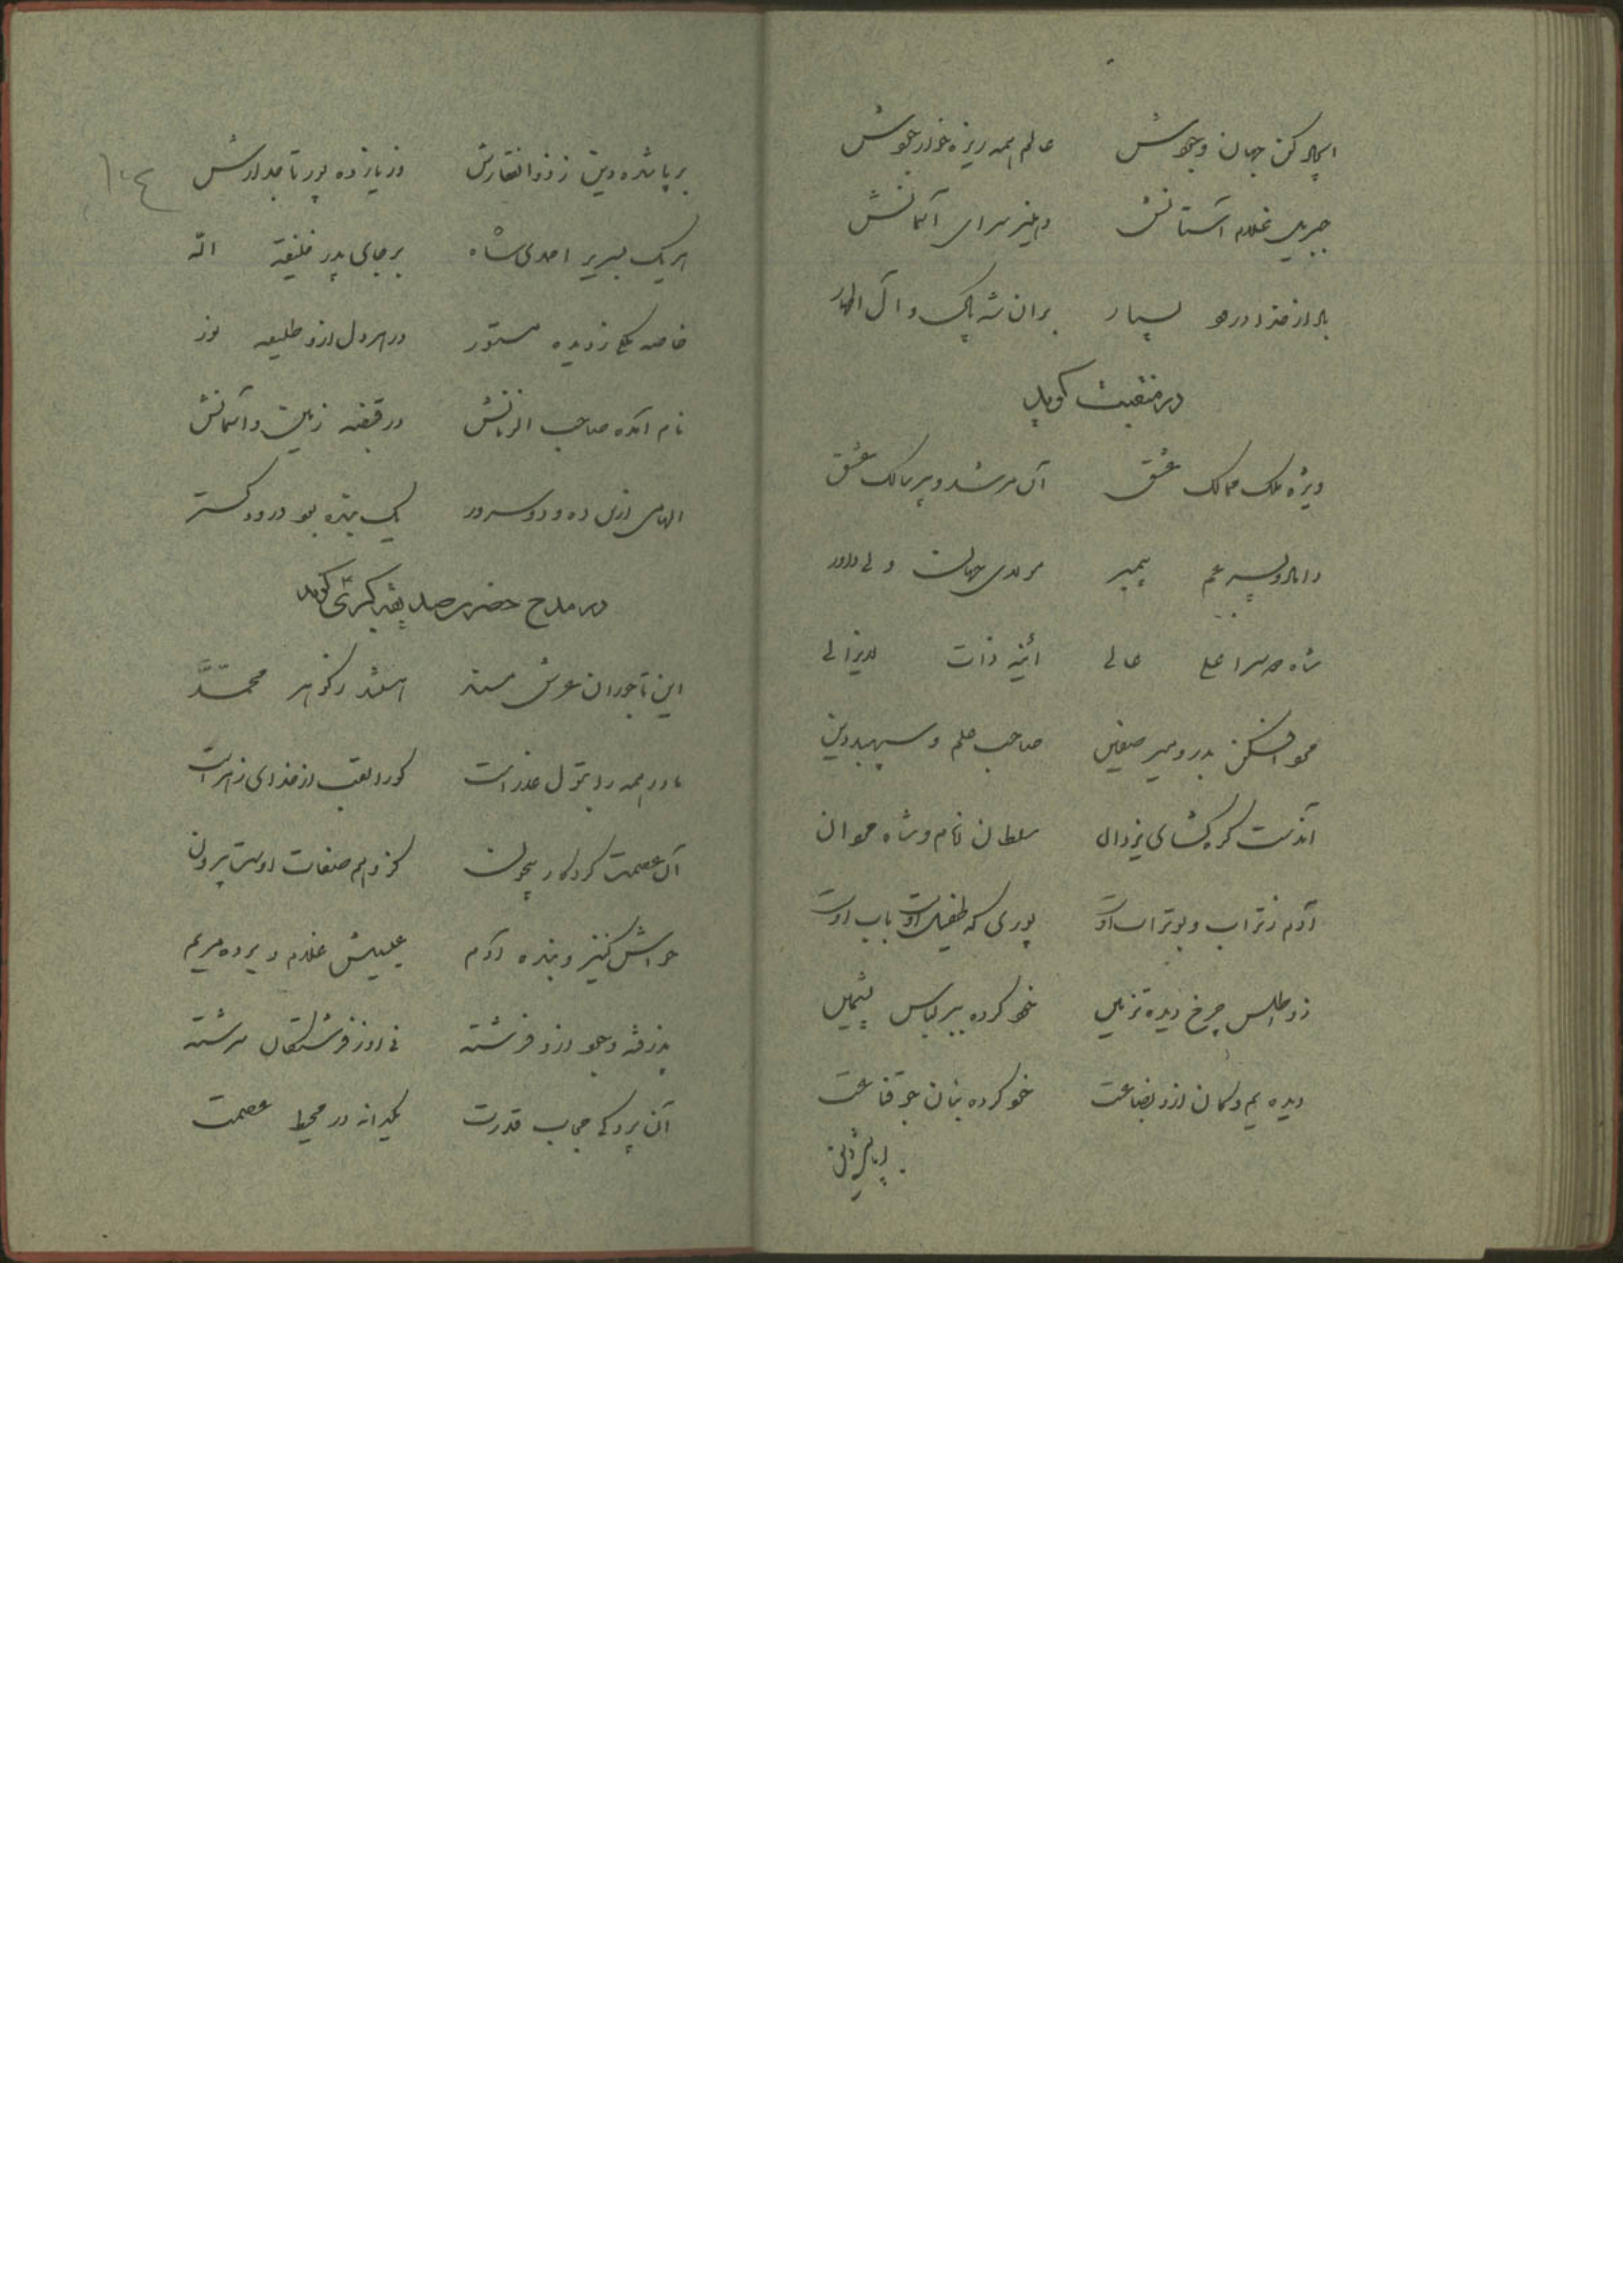 ایجاد کن جهان وجودش عالم همه ریزه خوار جودش
جبریل غلام آستانش دهلیز سرای آسمانش
باد از خدا درود بسیار بر آن شه پاک و آل اطهار
در منقبت گوید
ویژه ملک ممالک عشق آن مرشد و پیر سالک عشق
داماد و پسر عم پیمبر مولای جهان ولی داور
شاه دو سرا علی عالی آئینه ذات لایزالی
عمرو افکن بدر و میر صفین صاحب علم و سپهبد دین
آندست گره گشای یزدان سلطان انام و شاه مردان
آدم ز تراب و بوتراب اوست پوری که طفیل اوست باب اوست
زو اطلس چرخ دیده تزیین خو کرده ببر لباس پشمین
دیده یم و کان ازو بضاعت خو کرده بنان جو قناعت
برپا شده دین ز ذوالفقارش وز یازده پور تاجدارش
هر یک بسریر احمدی شاه بر جای پدر خلیفة الله
خاصه یکی ز دیده مستور در هر دل ازو طلیعه نور
نام آمده صاحب الزمانش در قبضه زمین و آسمانش
الهامی ازین ده و دو سرور یک بنده بود درود گستر
در مدح حضرت صدیقه کبری گوید
این تاجوران عرش مسند هستند ز گوهر محمد
مادر همه را بتول عذراست کورا لقب از خدای زهراست
آن عصمت کردگار بیچون کز وهم صفات اوست بیرون
حواش کنیز و بنده آدم عیسیش غلام و برده مریم
پذرفته وجود ازو فرشته نی او ز فرشتگان سرشته
آن پردگی حجاب قدرت یکدانه در محیط عصمت